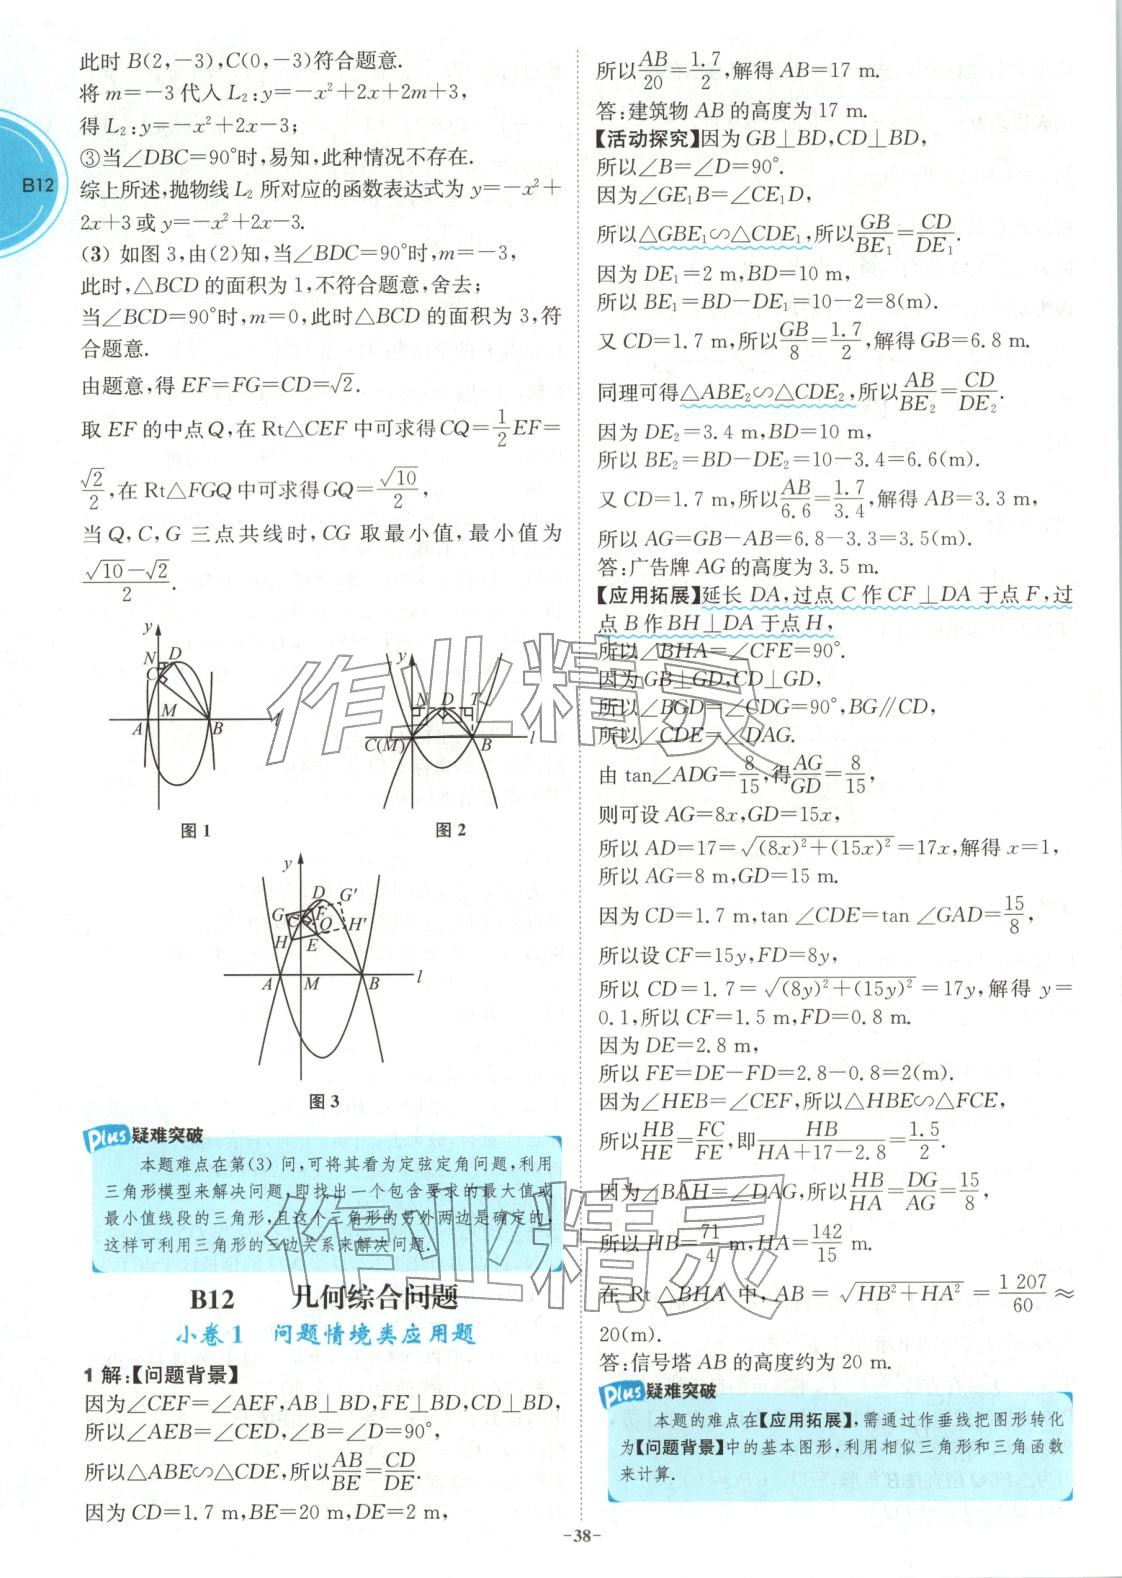 B12
此时 B(2,-3),C(0,-3)符合题意.
将 m=-3 代入 L₂:y=-x²+2x+2m+3,
得 L₂:y=-x²+2x-3;
③当∠DBC=90°时,易知,此种情况不存在.
综上所述,抛物线 L₂ 所对应的函数表达式为 y=-x²+
2x+3 或 y=-x²+2x-3.
(3) 如图 3,由(2)知,当∠BDC=90°时,m=-3,
此时,△BCD 的面积为 1,不符合题意,舍去;
当∠BCD=90°时,m=0,此时△BCD 的面积为 3,符
合题意.
由题意,得 EF=FG=CD=√2.
取 EF 的中点 Q,在 Rt△CEF 中可求得 CQ=1/2 EF=
√2/2,在 Rt△FGQ 中可求得 GQ=√10/2,
当 Q,C,G 三点共线时,CG 取最小值,最小值为
(√10-√2)/2.
y N D C M A B l
图 1
y N D T C(M) B l
图 2
y D G′ G C F Q H′ H E A M B l
图 3
Plus 疑难突破
本题难点在第(3)问,可将其看为定弦定角问题,利用
三角形模型来解决问题,即找出一个包含要求的最大值或
最小值线段的三角形,且这个三角形的另外两边是确定的,
这样可利用三角形的三边关系来解决问题.
B12 几何综合问题
小卷 1 问题情境类应用题
1 解:【问题背景】
因为∠CEF=∠AEF,AB⊥BD,FE⊥BD,CD⊥BD,
所以∠AEB=∠CED,∠B=∠D=90°,
所以△ABE∽△CDE,所以AB/BE=CD/DE.
因为 CD=1.7 m,BE=20 m,DE=2 m,
所以AB/20=1.7/2,解得 AB=17 m.
答:建筑物 AB 的高度为 17 m.
【活动探究】因为 GB⊥BD,CD⊥BD,
所以∠B=∠D=90°.
因为∠GE₁B=∠CE₁D,
所以△GBE₁∽△CDE₁,所以GB/BE₁=CD/DE₁.
因为 DE₁=2 m,BD=10 m,
所以 BE₁=BD-DE₁=10-2=8(m).
又 CD=1.7 m,所以GB/8=1.7/2,解得 GB=6.8 m.
同理可得△ABE₂∽△CDE₂,所以AB/BE₂=CD/DE₂.
因为 DE₂=3.4 m,BD=10 m,
所以 BE₂=BD-DE₂=10-3.4=6.6(m).
又 CD=1.7 m,所以AB/6.6=1.7/3.4,解得 AB=3.3 m,
所以 AG=GB-AB=6.8-3.3=3.5(m).
答:广告牌 AG 的高度为 3.5 m.
【应用拓展】延长 DA,过点 C 作 CF⊥DA 于点 F,过
点 B 作 BH⊥DA 于点 H,
所以∠BHA=∠CFE=90°.
因为 GB⊥GD,CD⊥GD,
所以∠BGD=∠CDG=90°,BG∥CD,
所以∠CDE=∠DAG.
由 tan∠ADG=8/15,得AG/GD=8/15,
则可设 AG=8x,GD=15x,
所以 AD=17=√((8x)²+(15x)²)=17x,解得 x=1,
所以 AG=8 m,GD=15 m.
因为 CD=1.7 m,tan ∠CDE=tan ∠GAD=15/8,
所以设 CF=15y,FD=8y,
所以 CD=1.7=√((8y)²+(15y)²)=17y,解得 y=
0.1,所以 CF=1.5 m,FD=0.8 m.
因为 DE=2.8 m,
所以 FE=DE-FD=2.8-0.8=2(m).
因为∠HEB=∠CEF,所以△HBE∽△FCE,
所以HB/HE=FC/FE,即HB/(HA+17-2.8)=1.5/2.
因为∠BAH=∠DAG,所以HB/HA=DG/AG=15/8,
所以 HB=71/4 m,HA=142/15 m.
在 Rt △BHA 中,AB=√(HB²+HA²)=1 207/60≈
20(m).
答:信号塔 AB 的高度约为 20 m.
Plus 疑难突破
本题的难点在【应用拓展】,需通过作垂线把图形转化
为【问题背景】中的基本图形,利用相似三角形和三角函数
来计算.
-38-
作业精灵
作业精灵